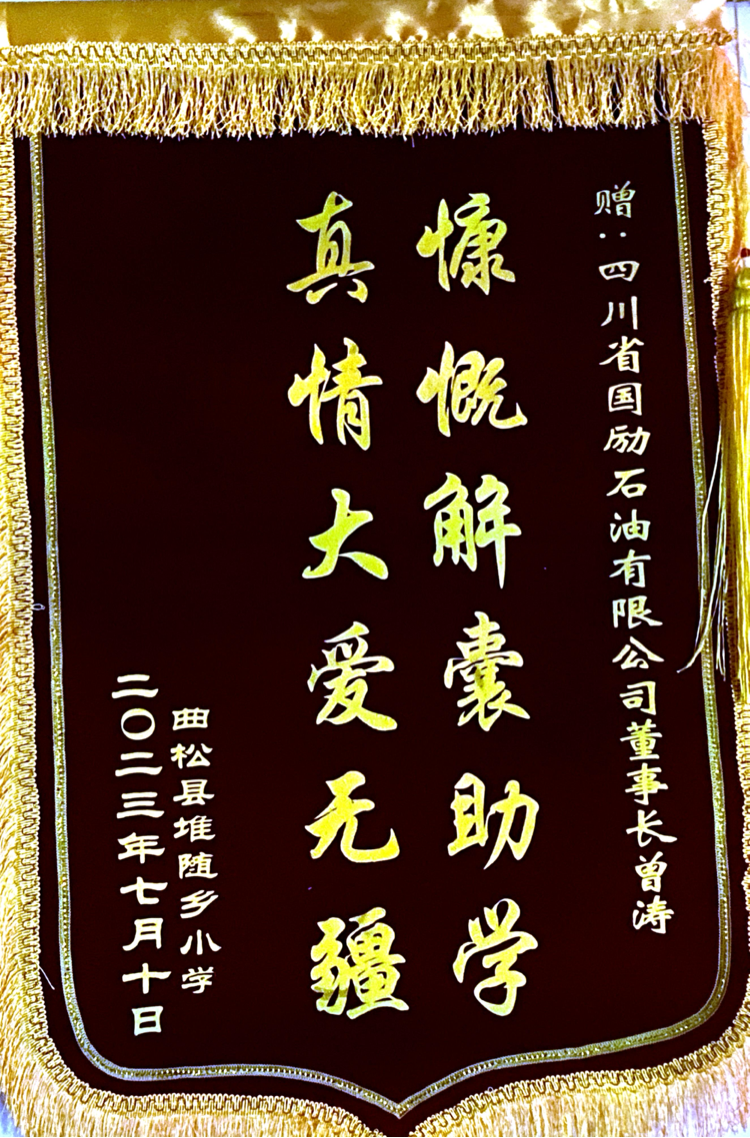 赠：四川省国励石油有限公司董事长曾涛
慷慨解囊助学
真情大爱无疆
曲松县堆随乡小学
二〇二三年七月十日